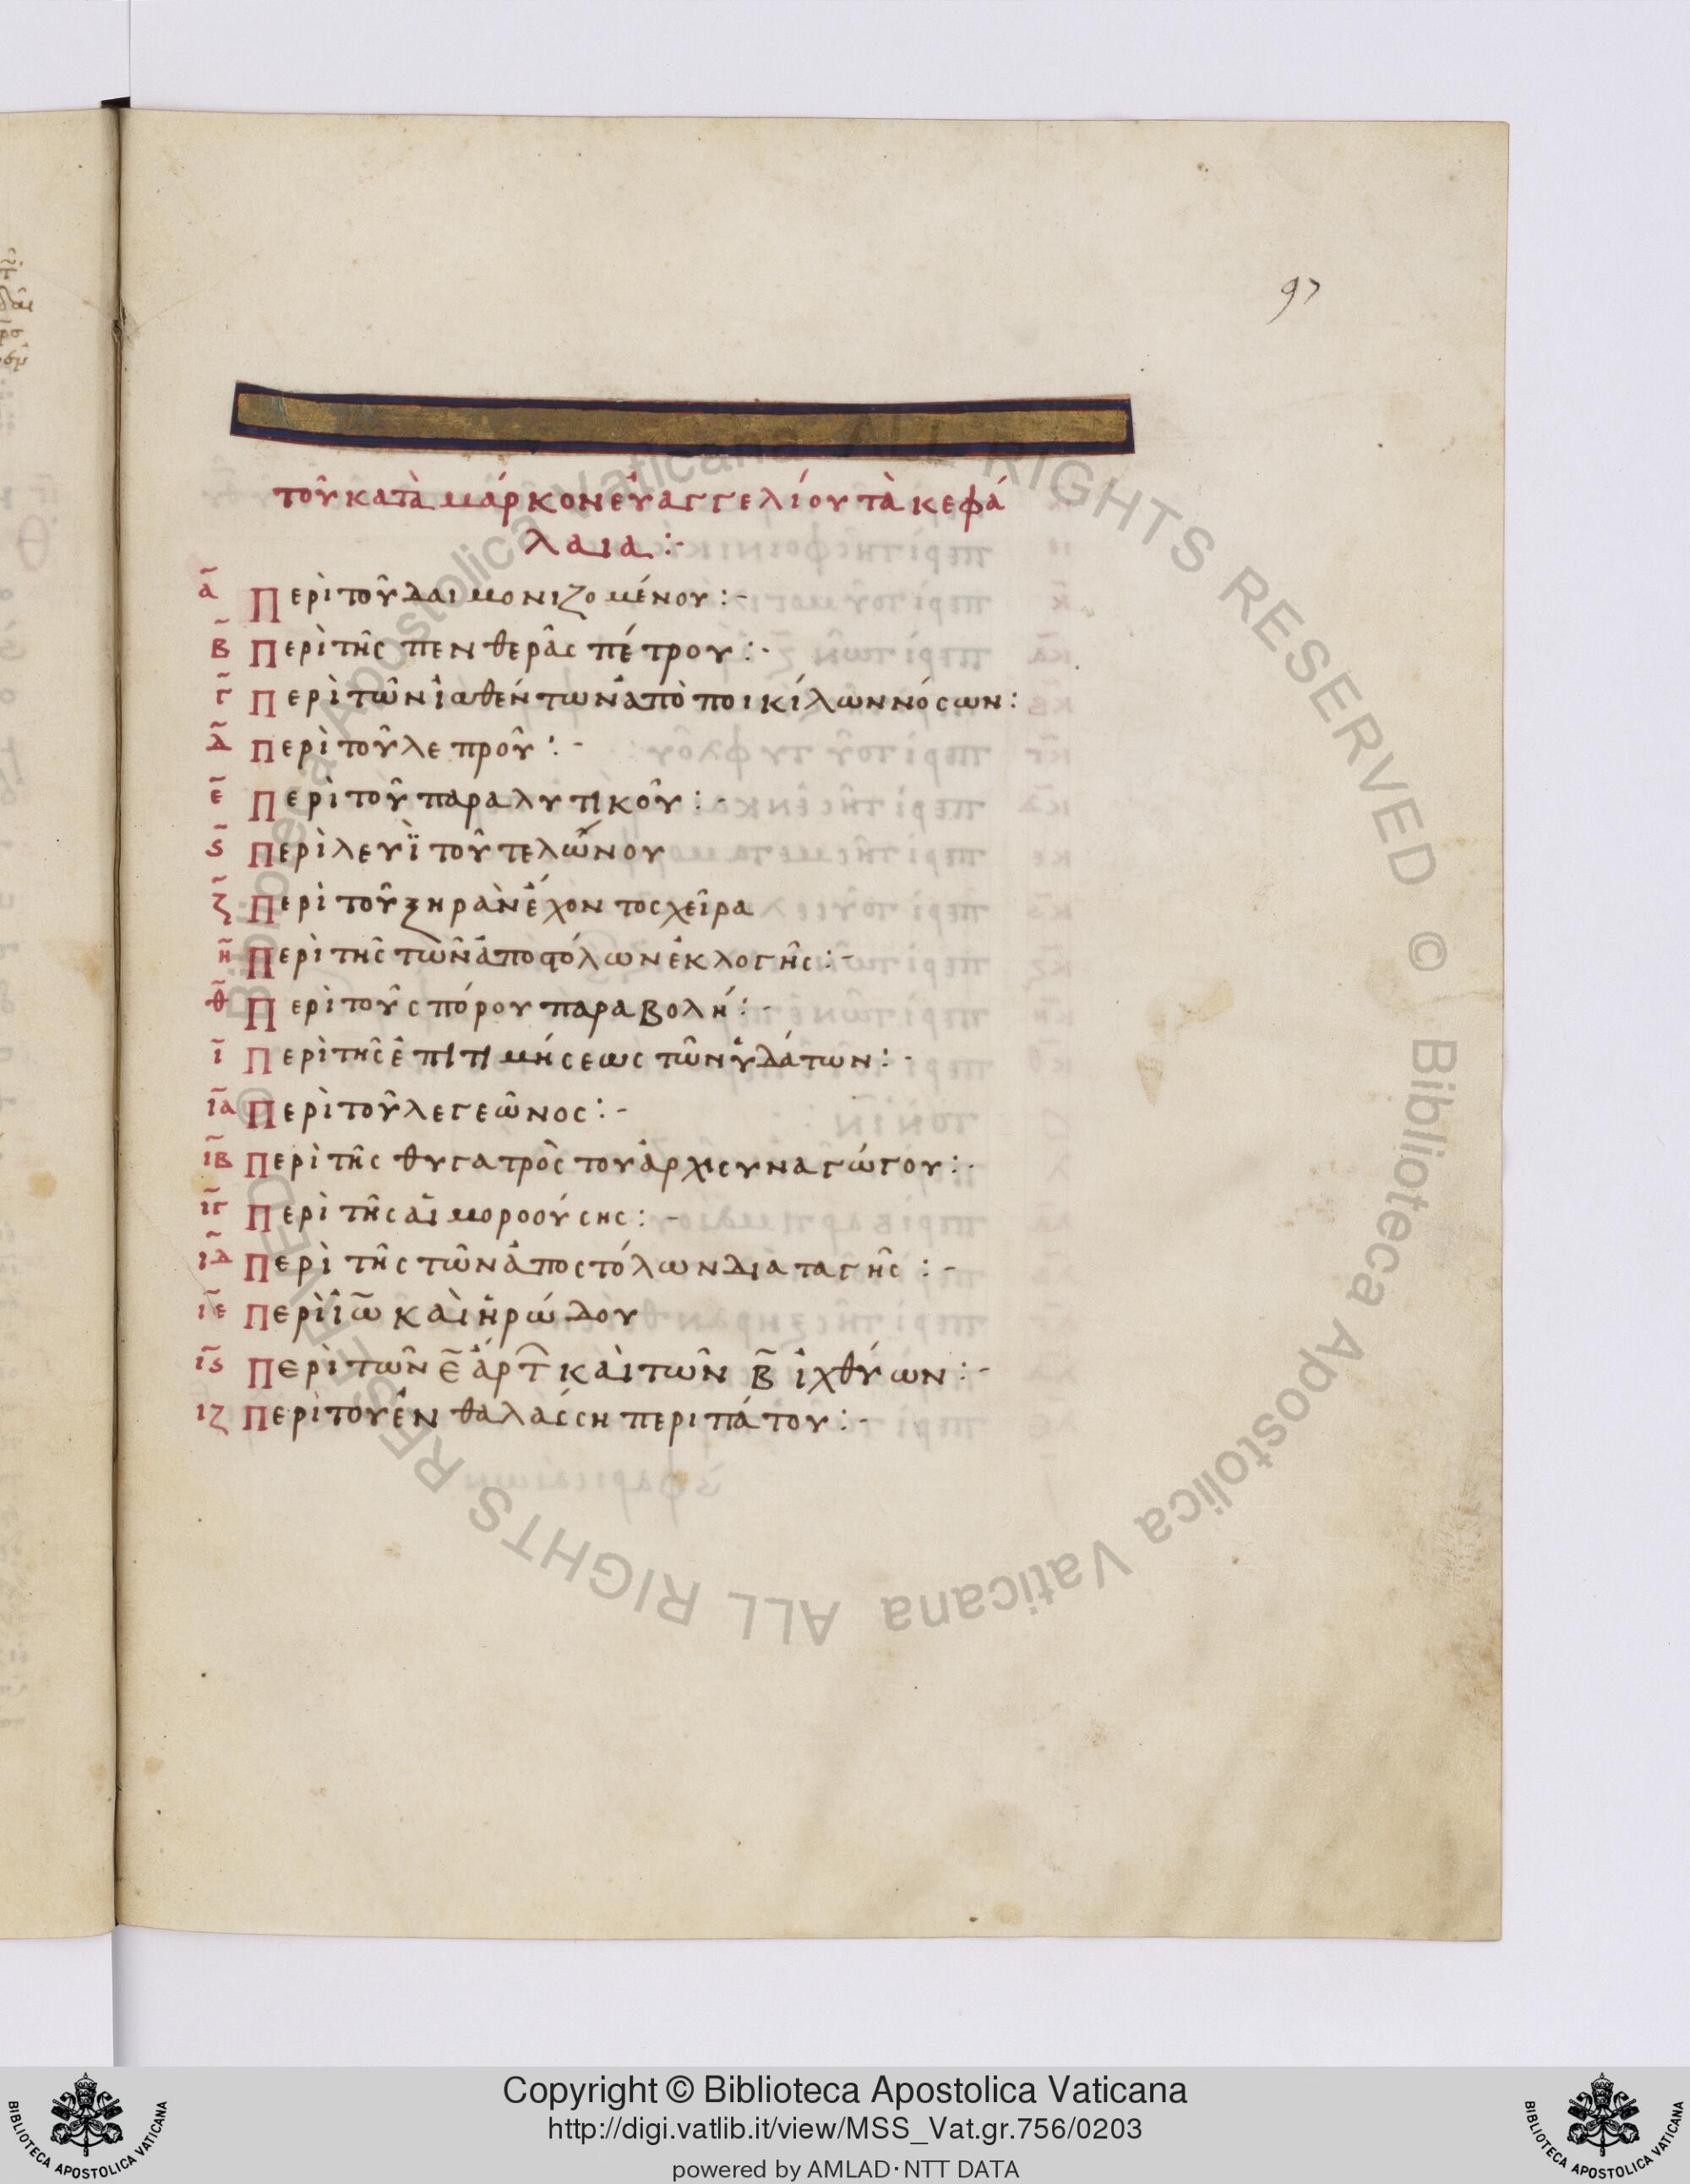 97
τοῦ κατὰ μάρκον εὐαγγελίου τὰ κεφά
λαια :-
α̅ Περὶ τοῦ δαιμονιζομένου :-
β̅ Περὶ τῆς πενθερᾶς πέτρου :-
γ̅ Περὶ τῶν ἰαθέντων ἀπὸ ποικίλων νόσων :
δ̅ Περὶ τοῦ λεπροῦ :-
ε̅ Περὶ τοῦ παραλυτικοῦ :-
ϛ̅ Περὶ λευῒ τοῦ τελώνου
ζ̅ Περὶ τοῦ ξηρὰν ἔχοντος χεῖρα
η̅ Περὶ τῆς τῶν ἀποστόλων ἐκλογῆς :-
θ̅ Περὶ τοῦ σπόρου παραβολή :-
ι̅ Περὶ τῆς ἐπιτιμήσεως τῶν ὑδάτων :-
ι̅α Περὶ τοῦ λεγεῶνος :-
ι̅β Περὶ τῆς θυγατρὸς του ἀρχισυναγώγου :-
ι̅γ Περὶ τῆς αἱμοροούσης :-
ι̅δ Περὶ τῆς τῶν ἀποστόλων διαταγῆς :-
ι̅ε Περὶ ἰω̅ καὶ ἡρώδου
ι̅ϛ Περὶ τῶν ε̅ ἄρτ̑ καὶ τῶν β̅ ἰχθύων :-
ιζ Περὶ του ἐν θαλάσση περιπάτου :-
© Biblioteca Apostolica Vaticana ALL RIGHTS RESERVED © Biblioteca Apostolica Vaticana ALL RIGHTS RESERVED
Copyright © Biblioteca Apostolica Vaticana
http://digi.vatlib.it/view/MSS_Vat.gr.756/0203
powered by AMLAD·NTT DATA
BIBLIOTECA APOSTOLICA VATICANA
BIBLIOTECA APOSTOLICA VATICANA